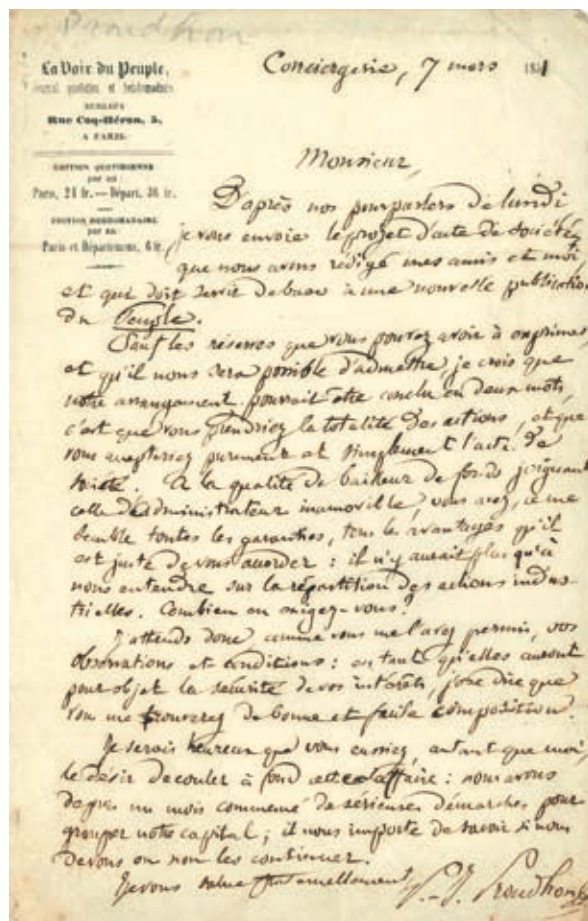 Proudhon
La Voix du Peuple,
Journal quotidien et hebdomadaire
BUREAUX
Rue Coq-Héron, 5,
A PARIS.
ÉDITION QUOTIDIENNE
par an
Paris, 24 fr. — Départ. 36 fr.
ÉDITION HEBDOMADAIRE
par an
Paris et Départemens, 6 fr.
Conciergerie, 7 mars 1851
Monsieur,
D'après nos pourparlers de lundi
je vous envoie le projet d'acte de société,
que nous avons rédigé mes amis et moi,
et qui doit servir de base à une nouvelle publication
du Peuple.
Sauf les réserves que vous pouvez avoir à exprimer,
et qu'il nous sera possible d'admettre, je crois que
notre arrangement pourrait être conclu en deux mots,
c'est que vous prendriez la totalité des actions, et que
vous accepteriez purement et simplement l'acte de
société. A la qualité de bailleur de fonds joignant
celle d'administrateur inamovible, vous avez, ce me
semble toutes les garanties, tous les avantages qu'il
est juste de vous accorder : il n'y aurait plus qu'à
nous entendre sur la répartition des actions indus-
trielles. Combien en exigez-vous?
J'attends donc, comme vous me l'avez permis, vos
observations et conditions : en tant qu'elles auront
pour objet la sécurité de vos intérêts, j'ose dire que
vous me trouverez de bonne et facile composition.
Je serais heureux que vous eussiez, autant que moi,
le désir de couler à fond cette affaire : nous avons
depuis un mois commencé de sérieuses démarches pour
grouper notre capital; il nous importe de savoir si nous
devons ou non les continuer.
Je vous salue fraternellement
P.-J. Proudhon